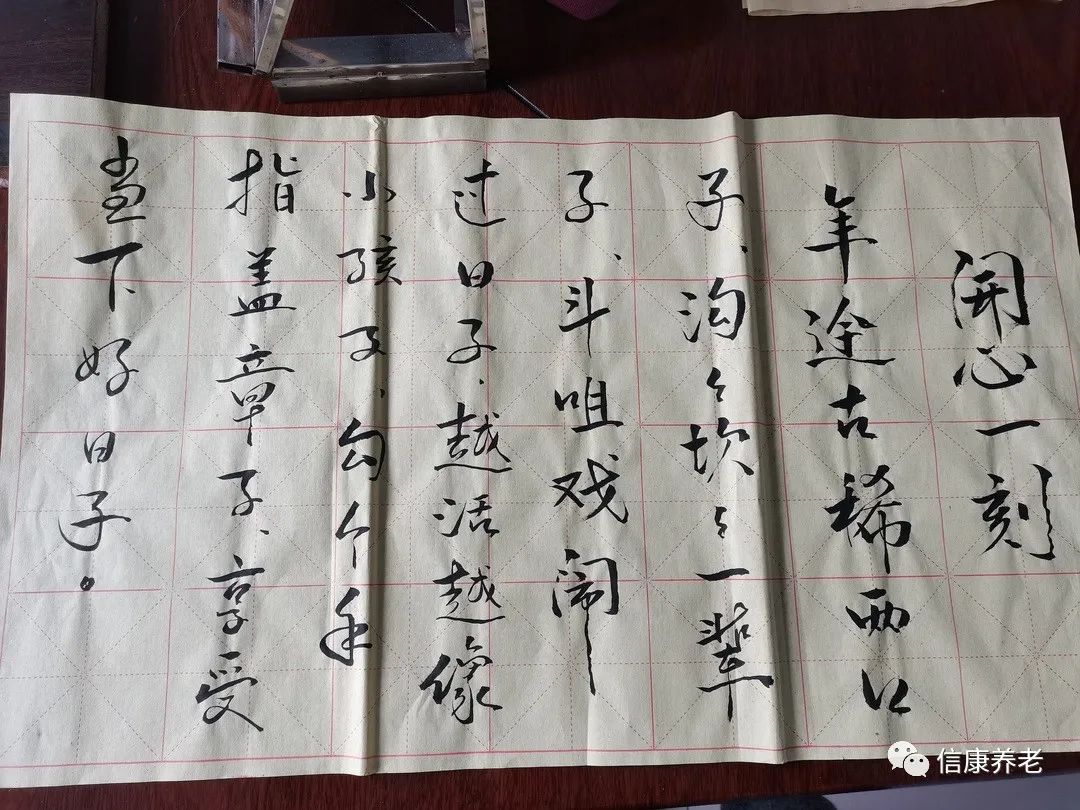 开心一刻
年逾古稀两口
子、沟々坎々一辈
子、斗咀戏闹
过日子、越活越像
小孩子、勾个手
指盖章子、享受
当下好日子。
信康养老